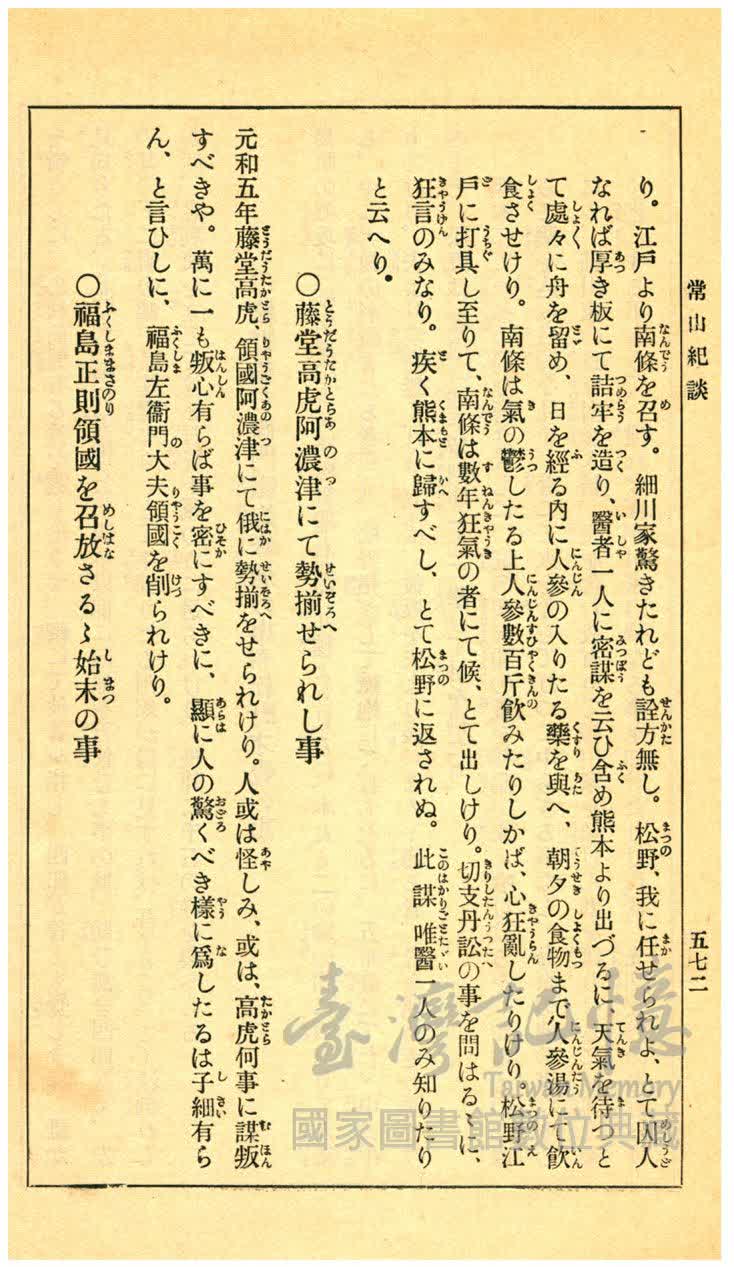 常山紀談
五七二
り。江戸より南條を召す。細川家驚きたれども詮方無し。松野、我に任せられよ、とて囚人
なれば厚き板にて詰牢を造り、醫者一人に密謀を云ひ含め熊本より出づるに、天氣を待つと
て處々に舟を留め、日を經る内に人參の入りたる藥を與へ、朝夕の食物まで人參湯にて飮
食させけり。南條は氣の鬱したる上人參數百斤飮みたりしかば、心狂亂したりけり。松野江
戸に打具し至りて、南條は數年狂氣の者にて候、とて出しけり。切支丹訟の事を問はるゝに、
狂言のみなり。疾く熊本に歸すべし、とて松野に返されぬ。此謀唯醫一人のみ知りたり
と云へり。
○藤堂高虎阿濃津にて勢揃せられし事
元和五年藤堂高虎、領國阿濃津にて俄に勢揃をせられけり。人或は怪しみ、或は、高虎何事に謀叛
すべきや。萬に一も叛心有らば事を密にすべきに、顯に人の驚くべき樣に爲したるは子細有ら
ん、と言ひしに、福島左衞門大夫領國を削られけり。
○福島正則領國を召放さるゝ始末の事
臺灣記憶
Taiwan Memory
國家圖書館數位典藏